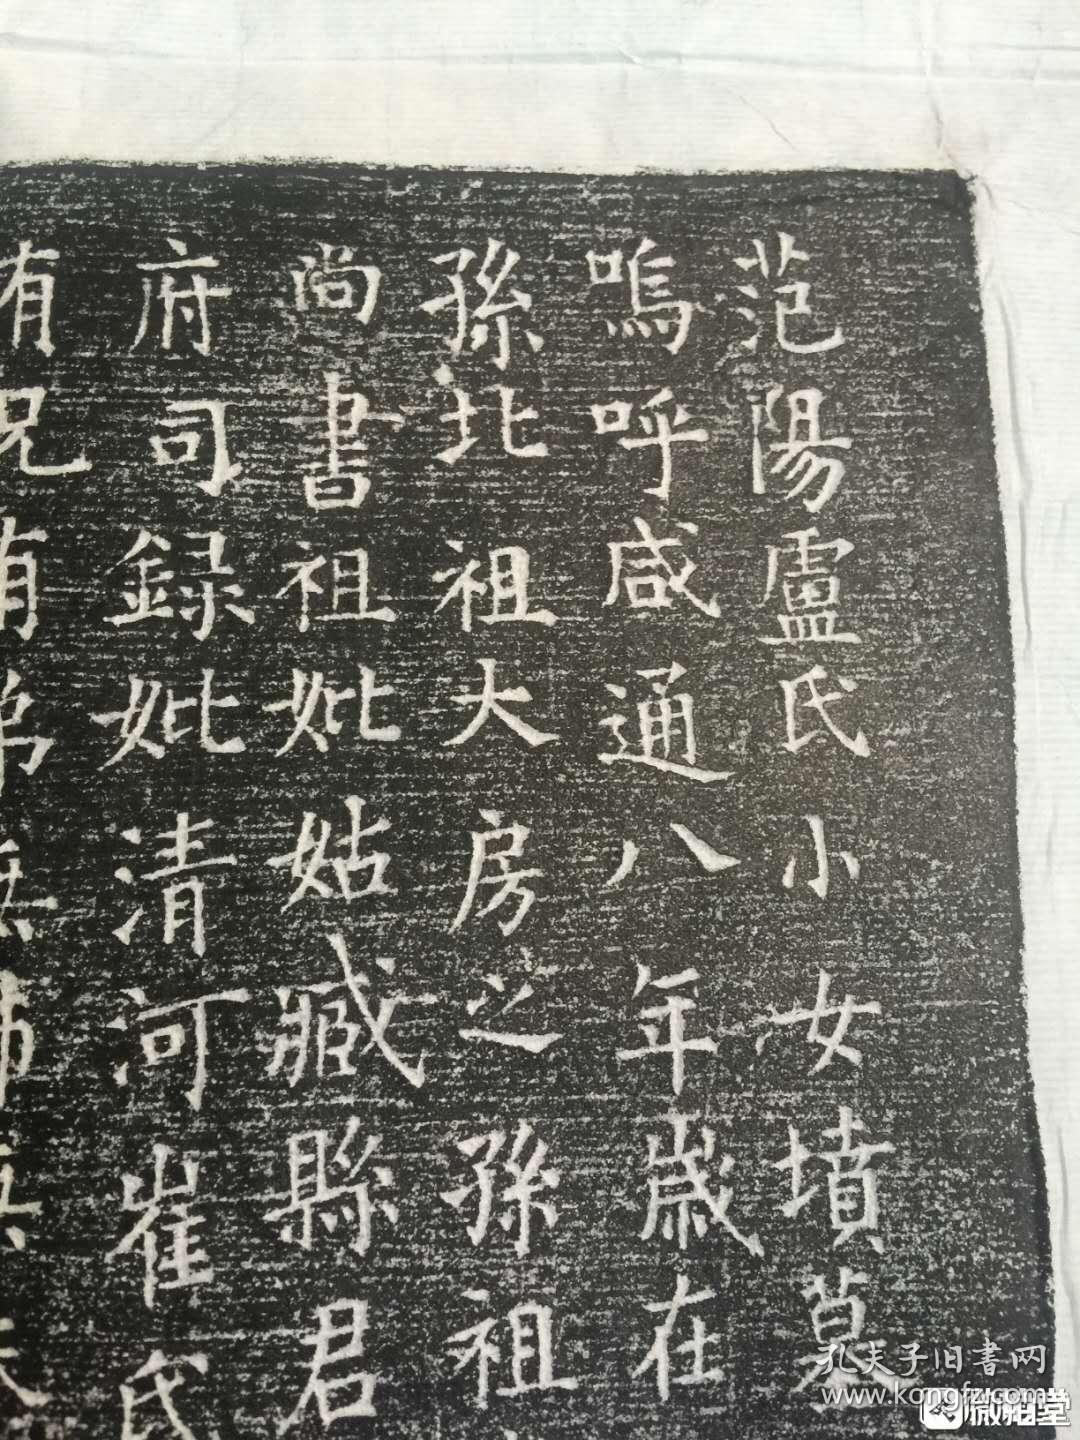 范陽盧氏小女墳墓
嗚呼咸通八年歲在
孫北祖大房之孫祖
尚書祖妣姑臧縣君
府司録妣清河崔氏
有兄有弟無姉無
孔夫子旧書网
www.kongfz.com
微拍堂